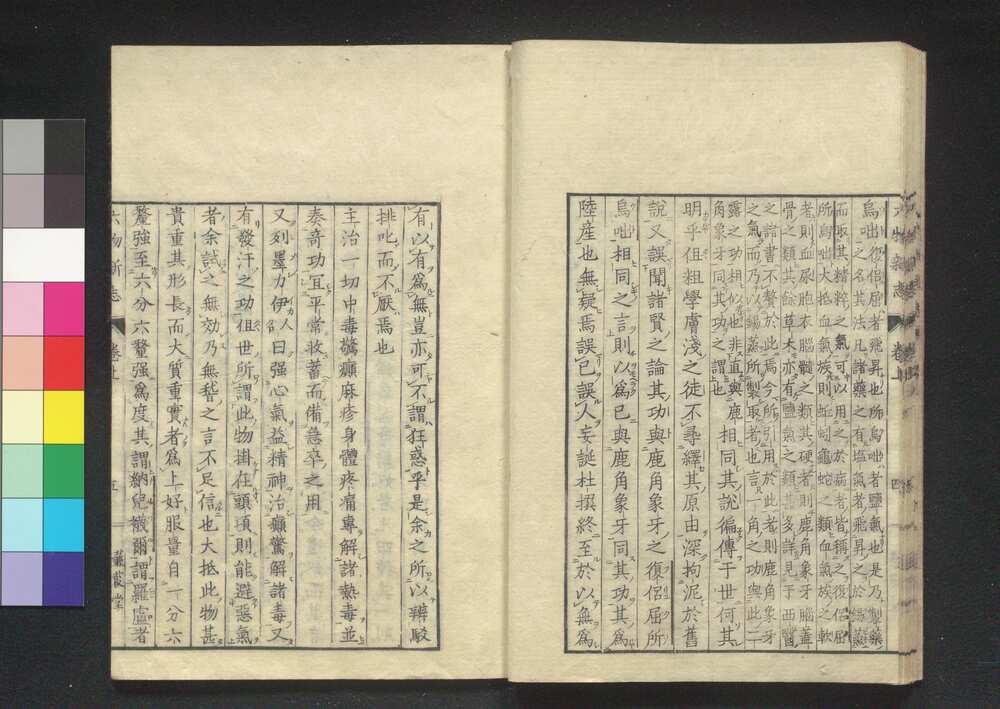 烏咄復侶屈者飛昇也所烏咄者鹽氣也是乃製藥
之名其法凡諸藥之有塩氣者飛昇之
而取其精粹之氣可以用之於病者皆稱之復侶屈
所烏咄大抵血氣族則蚯蚓龜蛇之類血氣族之軟
者則血尿胞衣腦髓之類其硬者則鹿角象牙腦蓋
骨之類其餘草木亦有鹽氣之類甚多詳見于西醫
之諸書不贅於此焉今所引用於此者則鹿角象牙
之氣而乃以蒸所製取者也言一角之功與此二
露之功相似也非直與鹿
角象牙同其功之謂也
相同其說徧傳于世何其
明乎伹粗學膚淺之徒不尋繹其原由深拘泥於舊
說又誤聞諸賢之論其功與鹿角象牙之復侶屈所
烏咄相同之言則以為已與鹿角象牙同其功其為
陸產也無疑焉誤已誤人妄誕杜撰終至於以無為
有以有為無豈亦可不謂狂惑乎是余之所以辨駁
排叱而不厭焉也
主治一切中毒驚癲麻疹身體疼痛專解諸熱毒並
奏奇功宜平常收蓄而備急卒之用
又列墨力伊人名曰强心氣益精神治癲驚解諸毒又
有發汗之功伹世所謂此物掛在頸項則能避惡氣
者余試之無効乃無稽之言不足信也大抵此物甚
貴重其形長而大質重實者為上好服量自一分六
釐強至六分六釐强為度其謂納兒襪爾謂羅盧者
六物新志
卷上
五
蘭𦾔堂
六物新志
卷上
四